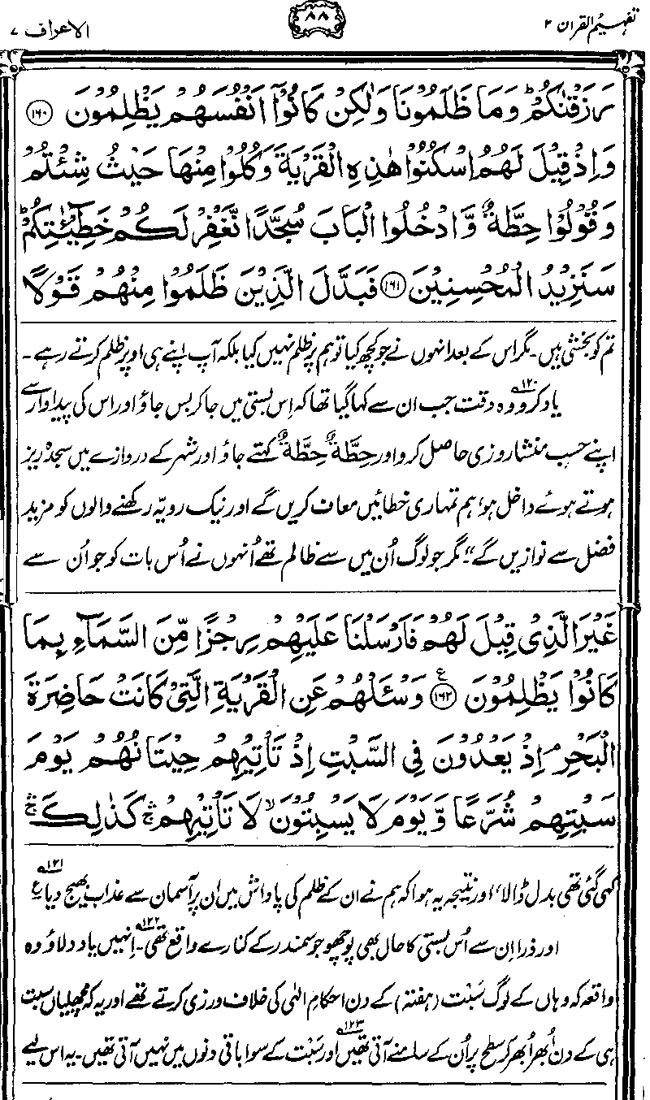 تفہیم القرآن ۲
۸۸
الاعراف ۷
رَزَقْنٰكُمْ ؕ وَمَا ظَلَمُوْنَا وَلٰكِنْ كَانُوْۤا اَنْفُسَهُمْ يَظْلِمُوْنَ ﴿۱۶۰﴾
وَاِذْ قِيْلَ لَهُمُ اسْكُنُوْا هٰذِهِ الْقَرْيَةَ وَكُلُوْا مِنْهَا حَيْثُ شِئْتُمْ
وَقُوْلُوْا حِطَّةٌ وَّادْخُلُوا الْبَابَ سُجَّدًا نَّغْفِرْ لَكُمْ خَطِيْٓـٰٔتِكُمْ ؕ
سَنَزِيْدُ الْمُحْسِنِيْنَ ﴿۱۶۱﴾ فَبَدَّلَ الَّذِيْنَ ظَلَمُوْا مِنْهُمْ قَوْلًا
تم کو بخشی ہیں۔ مگر اس کے بعد انہوں نے جو کچھ کیا تو ہم پر ظلم نہیں کیا بلکہ آپ اپنے ہی اوپر ظلم کرتے رہے۔
یاد کرو ۱۲۰ وہ وقت جب ان سے کہا گیا تھا کہ اِس بستی میں جا کر بس جاؤ اور اس کی پیداوار سے
اپنے حسب منشا روزی حاصل کرو اور حِطَّةٌ حِطَّةٌ کہتے جاؤ اور شہر کے دروازے میں سجدہ ریز
ہوتے ہوئے داخل ہو، ہم تمہاری خطائیں معاف کریں گے اور نیک رویّہ رکھنے والوں کو مزید
فضل سے نوازیں گے“۔ مگر جو لوگ اُن میں سے ظالم تھے اُنہوں نے اُس بات کو جو اُن سے
غَيْرَ الَّذِيْ قِيْلَ لَهُمْ فَاَرْسَلْنَا عَلَيْهِمْ رِجْزًا مِّنَ السَّمَآءِ بِمَا
كَانُوْا يَظْلِمُوْنَ ﴿۱۶۲﴾ ع وَسْـَٔلْهُمْ عَنِ الْقَرْيَةِ الَّتِيْ كَانَتْ حَاضِرَةَ
الْبَحْرِ ۘ اِذْ يَعْدُوْنَ فِي السَّبْتِ اِذْ تَاْتِيْهِمْ حِيْتَانُهُمْ يَوْمَ
سَبْتِهِمْ شُرَّعًا وَّيَوْمَ لَا يَسْبِتُوْنَ ۙ لَا تَاْتِيْهِمْ ۛۚ كَذٰلِكَ ۛۚ
کہی گئی تھی بدل ڈالا، اور نتیجہ یہ ہوا کہ ہم نے ان کے ظلم کی پاداش میں ان پر آسمان سے عذاب بھیج دیا ۱۲۱ ع
اور ذرا اِن سے اُس بستی کا حال بھی پوچھو جو سمندر کے کنارے واقع تھی ۱۲۲۔ اِنہیں یاد دلاؤ وہ
واقعہ کہ وہاں کے لوگ سَبْت (ہفتہ) کے دن احکامِ الٰہی کی خلاف ورزی کرتے تھے اور یہ کہ مچھلیاں سبت
ہی کے دن اُبھر اُبھر کر سطح پر اُن کے سامنے آتی تھیں ۱۲۳ اور سَبْت کے سوا باقی دنوں میں نہیں آتی تھیں۔ یہ اس لیے